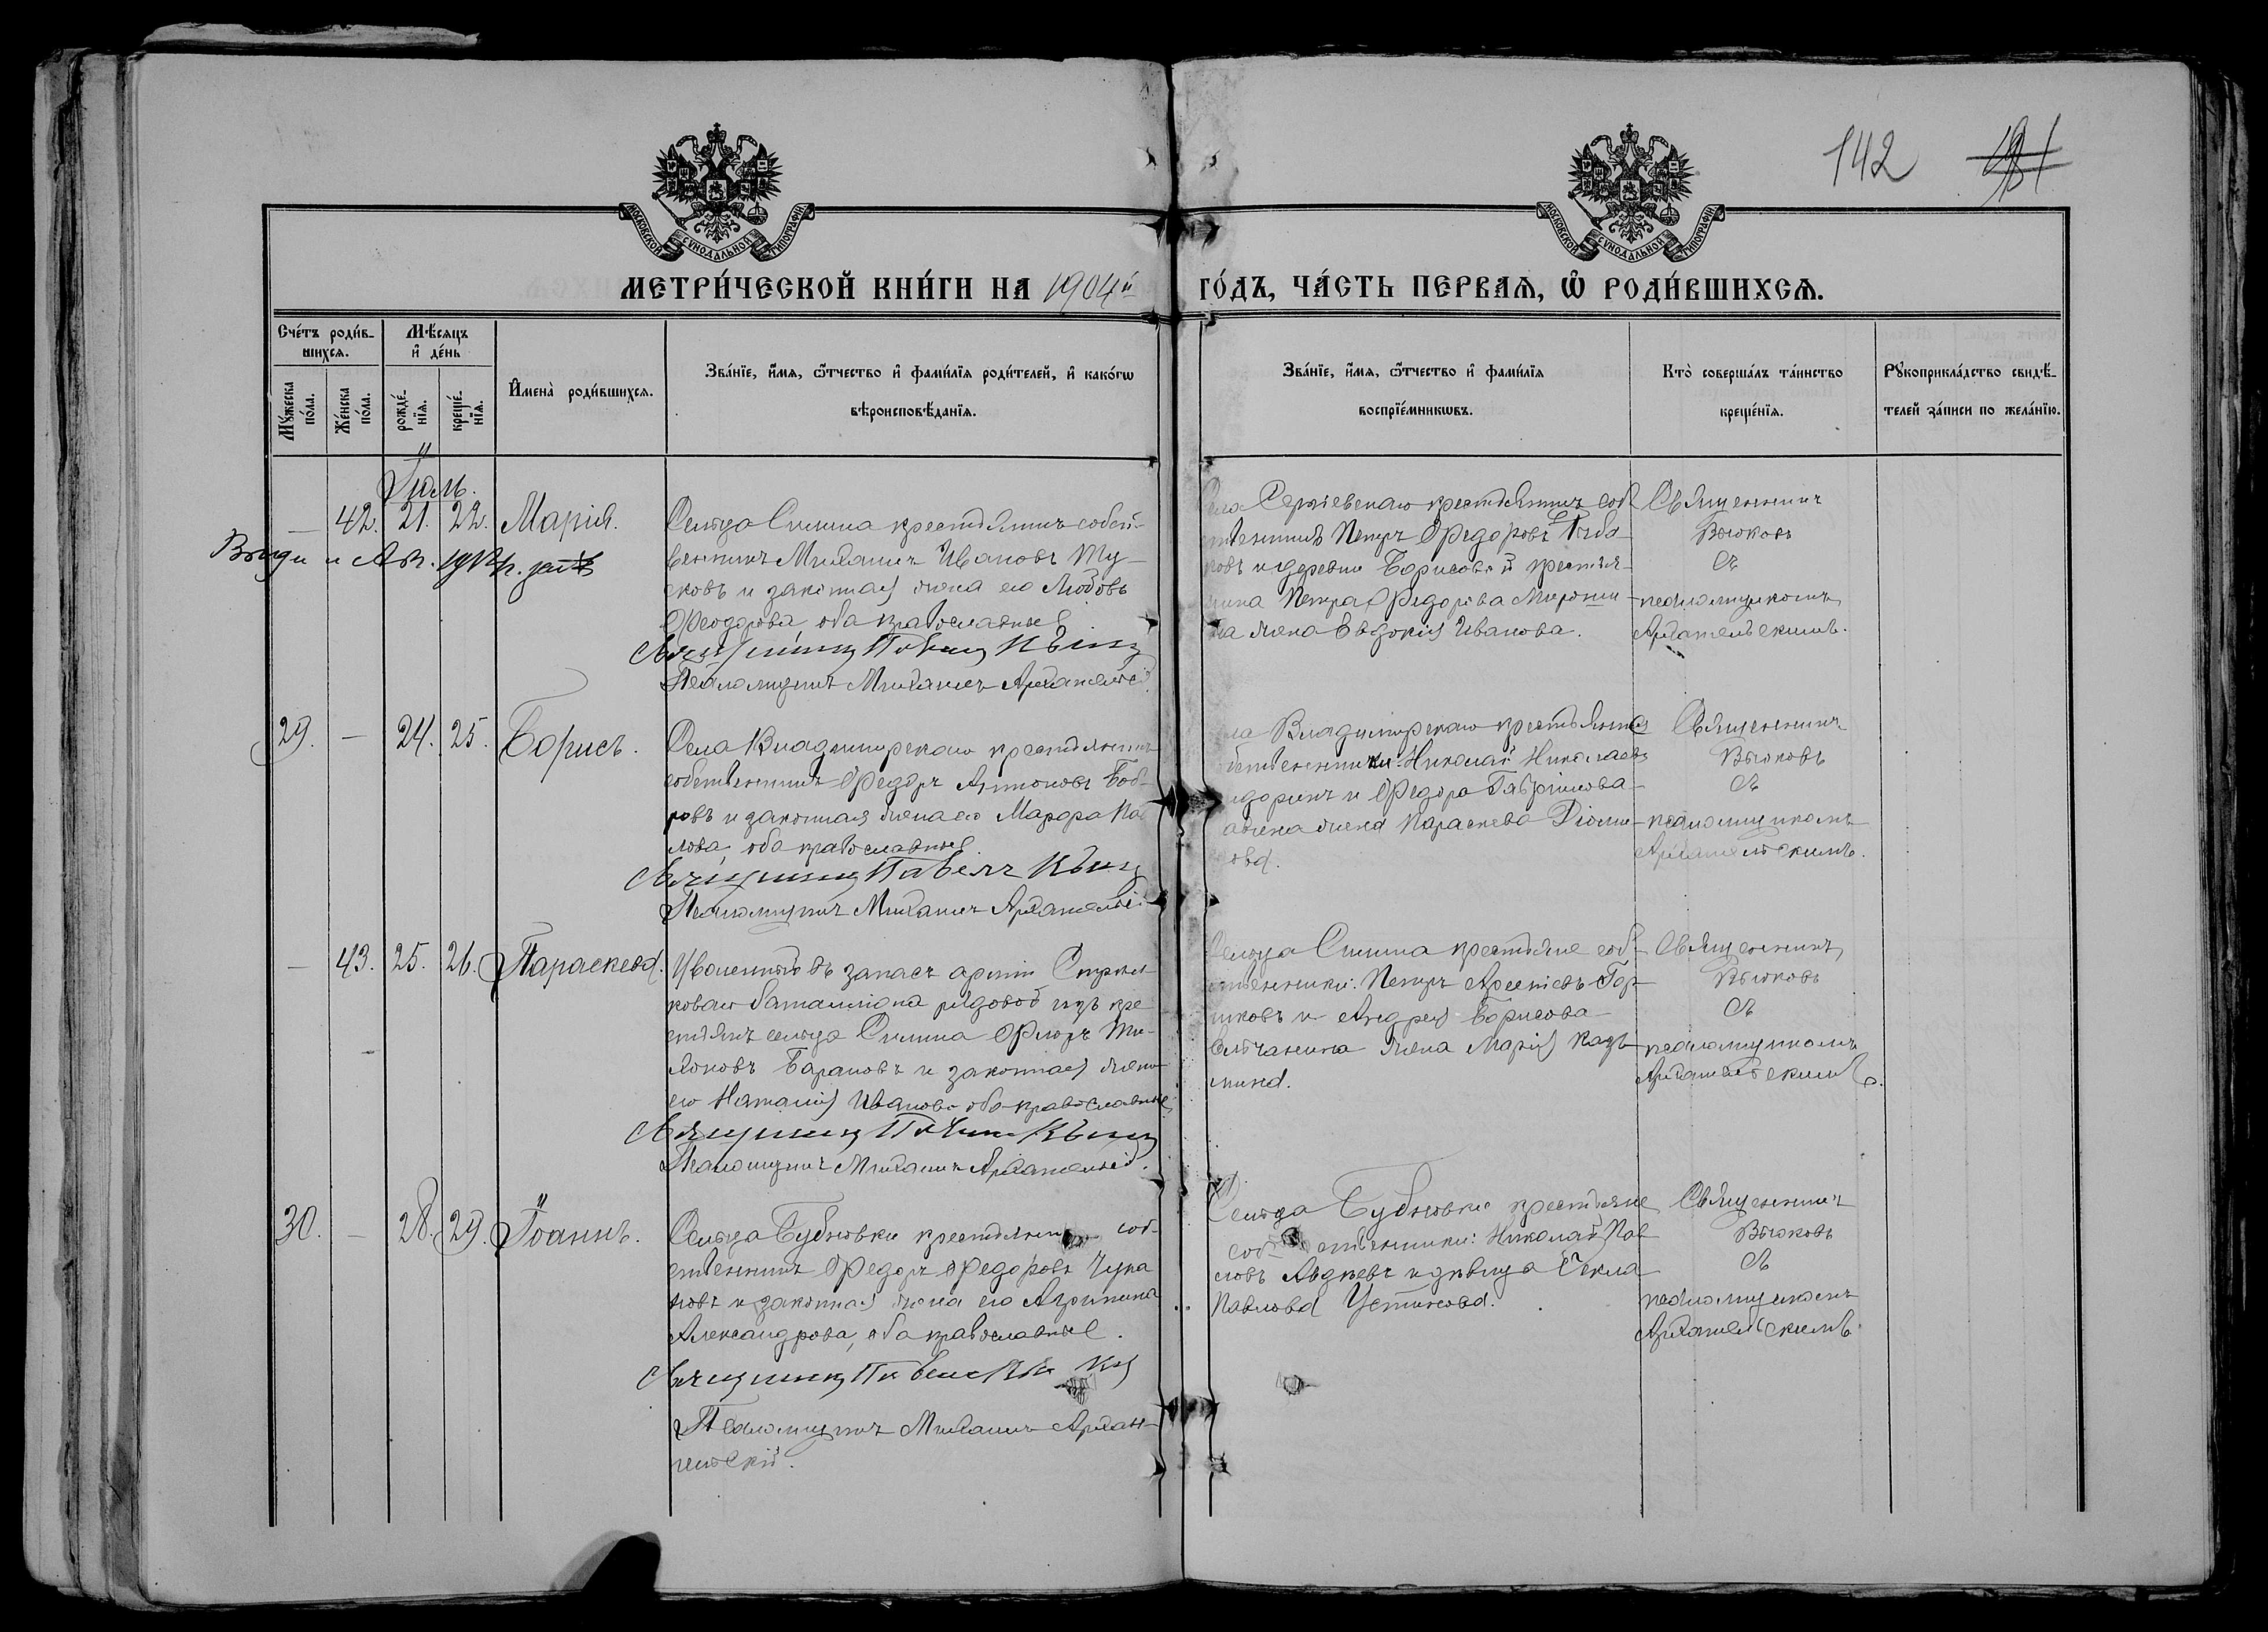 142
МОСКОВСКОЙ СУНОДАЛЬНОЙ ТИПОГРАФІИ
МОСКОВСКОЙ СУНОДАЛЬНОЙ ТИПОГРАФІИ
МЕТРИ́ЧЕСКОЙ КНИ́ГИ НА 1904й ГО́ДЪ, ЧА́СТЬ ПЕРВАѦ, Ѡ҆ РОДИ́ВШИХСѦ.
Сче́тъ роди́в-
шихсѧ.
Мѣ́сѧцъ
и҆ де́нь
Мꙋ́жеска
по́ла.
Же́нска
по́ла.
рожде́-
нїѧ.
креще́-
нїѧ.
И҆мена̀ роди́вшихсѧ.
Зва́нїе, и҆́мѧ, ѻ҆́тчество и҆ фами́лїѧ роди́телей, и҆ како́гѡ
вѣроисповѣ́данїѧ.
Зва́нїе, и҆́мѧ, ѻ҆́тчество и҆ фами́лїѧ
воспрїе́мникѡвъ.
Кто̀ соверша́лъ та́инство
креще́нїѧ.
Рꙋкоприкла́дство свидѣ́-
телей за́писи по жела́нїю.
Іюль.
— 42. 21. 22. Марія.
Сельца Сишина крестьянинъ собст-
венникъ Михаилъ Ивановъ
и законная жена его Любовь
Ѳеодорова, оба православные
Священникъ Павелъ
Псаломщикъ Михаилъ Архангельскій
Сергіевскаго крестьянинъ соб-
ственникъ Петръ Ѳедоровъ
и деревни Борисовой крестья-
нина Петра Ѳедорова
жена Евдокія Иванова.
Священникъ
Вьюковъ
съ
псаломщикомъ
Архангельскимъ.
29. — 24. 25. Борисъ.
Села Владимирскаго крестьянинъ
собственникъ Ѳедоръ Антоновъ Боб-
ровъ и законная жена его Марѳа Пав-
лова, оба православные.
Священникъ Павелъ
Псаломщикъ Михаилъ Архангельскій
Владимирскаго крестьяне
собственники: Николай Николаевъ
и Ѳедора Гавриилова
жена Параскева
Священникъ
Вьюковъ
съ
псаломщикомъ
Архангельскимъ.
— 43. 25. 26. Параскева.
Уволенный въ запасъ арміи Стрѣл-
коваго баталліона рядовой изъ кре-
стьянъ сельца Сишина Ѳлоръ Ти-
хоновъ Барановъ и законная жена
его Наталія Иванова оба православные
Священникъ Павелъ
Псаломщикъ Михаилъ Архангельскій.
Сельца Сишина крестьяне соб-
ственники: Петръ Арсеніевъ Гор-
шковъ и Андрея Борисова
жена Марія Кузь-
мина.
Священникъ
Вьюковъ
съ
псаломщикомъ
Архангельскимъ.
30. — 28. 29. Іоаннъ.
Сельца Бубновки крестьянинъ соб-
ственникъ Ѳедоръ Ѳедоровъ Чука-
новъ и законная жена его Агрипина
Александрова, оба православные.
Священникъ Павелъ
Псаломщикъ Михаилъ Архан-
гельскій.
Сельца Бубновки крестьяне
собственники: Николай Пав-
ловъ Авдѣевъ и дѣвица Ѳекла
Павлова Устинова.
Священникъ
Вьюковъ
съ
псаломщикомъ
Архангельскимъ